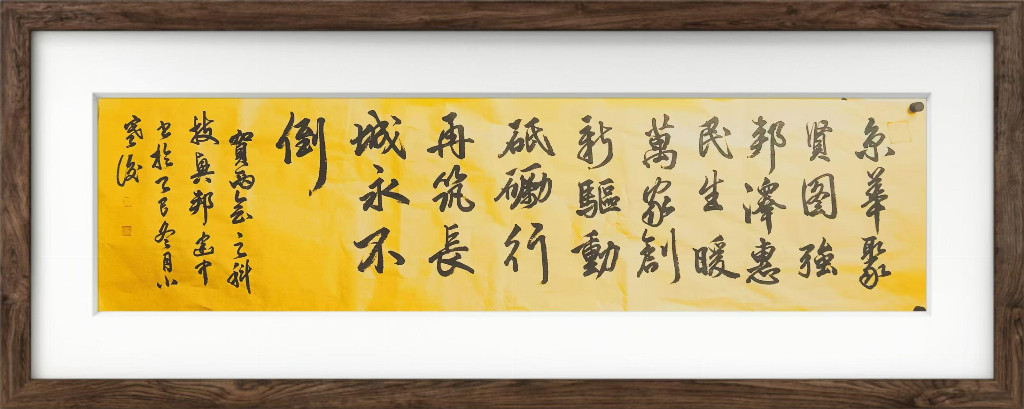 京華聚
賢图強
邦澤惠
民生暖
萬家創
新驅動
砥礪行
再筑長
城永不
倒
賀两会之科
技興邦 中
书於乙巳冬月小
寒後